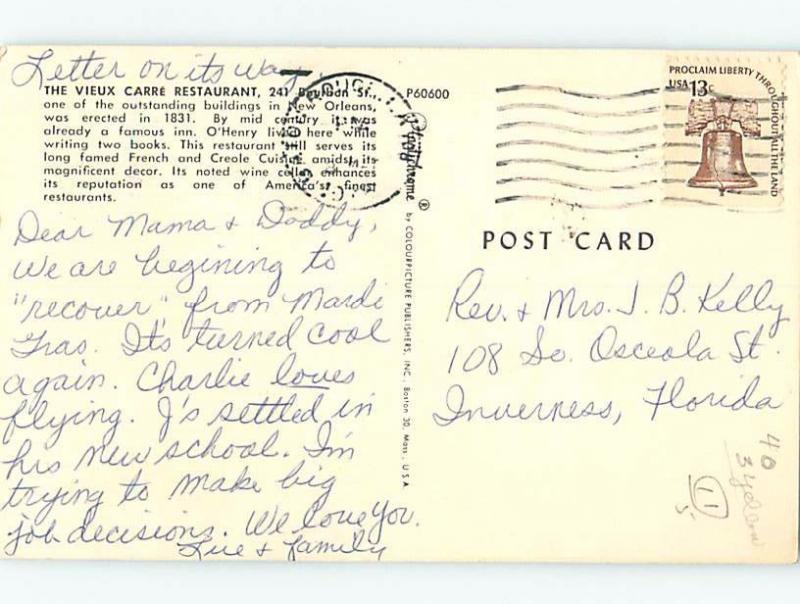 Letter on its way.
THE VIEUX CARRÉ RESTAURANT, 241 Bourbon St.,
one of the outstanding buildings in New Orleans,
was erected in 1831. By mid century it was
already a famous inn. O'Henry lived here while
writing two books. This restaurant still serves its
long famed French and Creole Cuisine amidst its
magnificent decor. Its noted wine cellar enhances
its reputation as one of America's finest
restaurants.
Dear Mama & Daddy,
We are begining to
"recover" from Mardi
Gras. It's turned cool
again. Charlie loves
flying. J's settled in
his new school. I'm
trying to make big
job decisions. We love you.
& family
P60600
Plastichrome ®
by COLOURPICTURE PUBLISHERS, INC., Boston 30, Mass., U.S.A.
PROCLAIM LIBERTY THROUGHOUT ALL THE LAND
USA 13c
POST CARD
Rev. & Mrs. J. B. Kelly
108 So. Osceola St.
Inverness, Florida
40
3 yellow
11